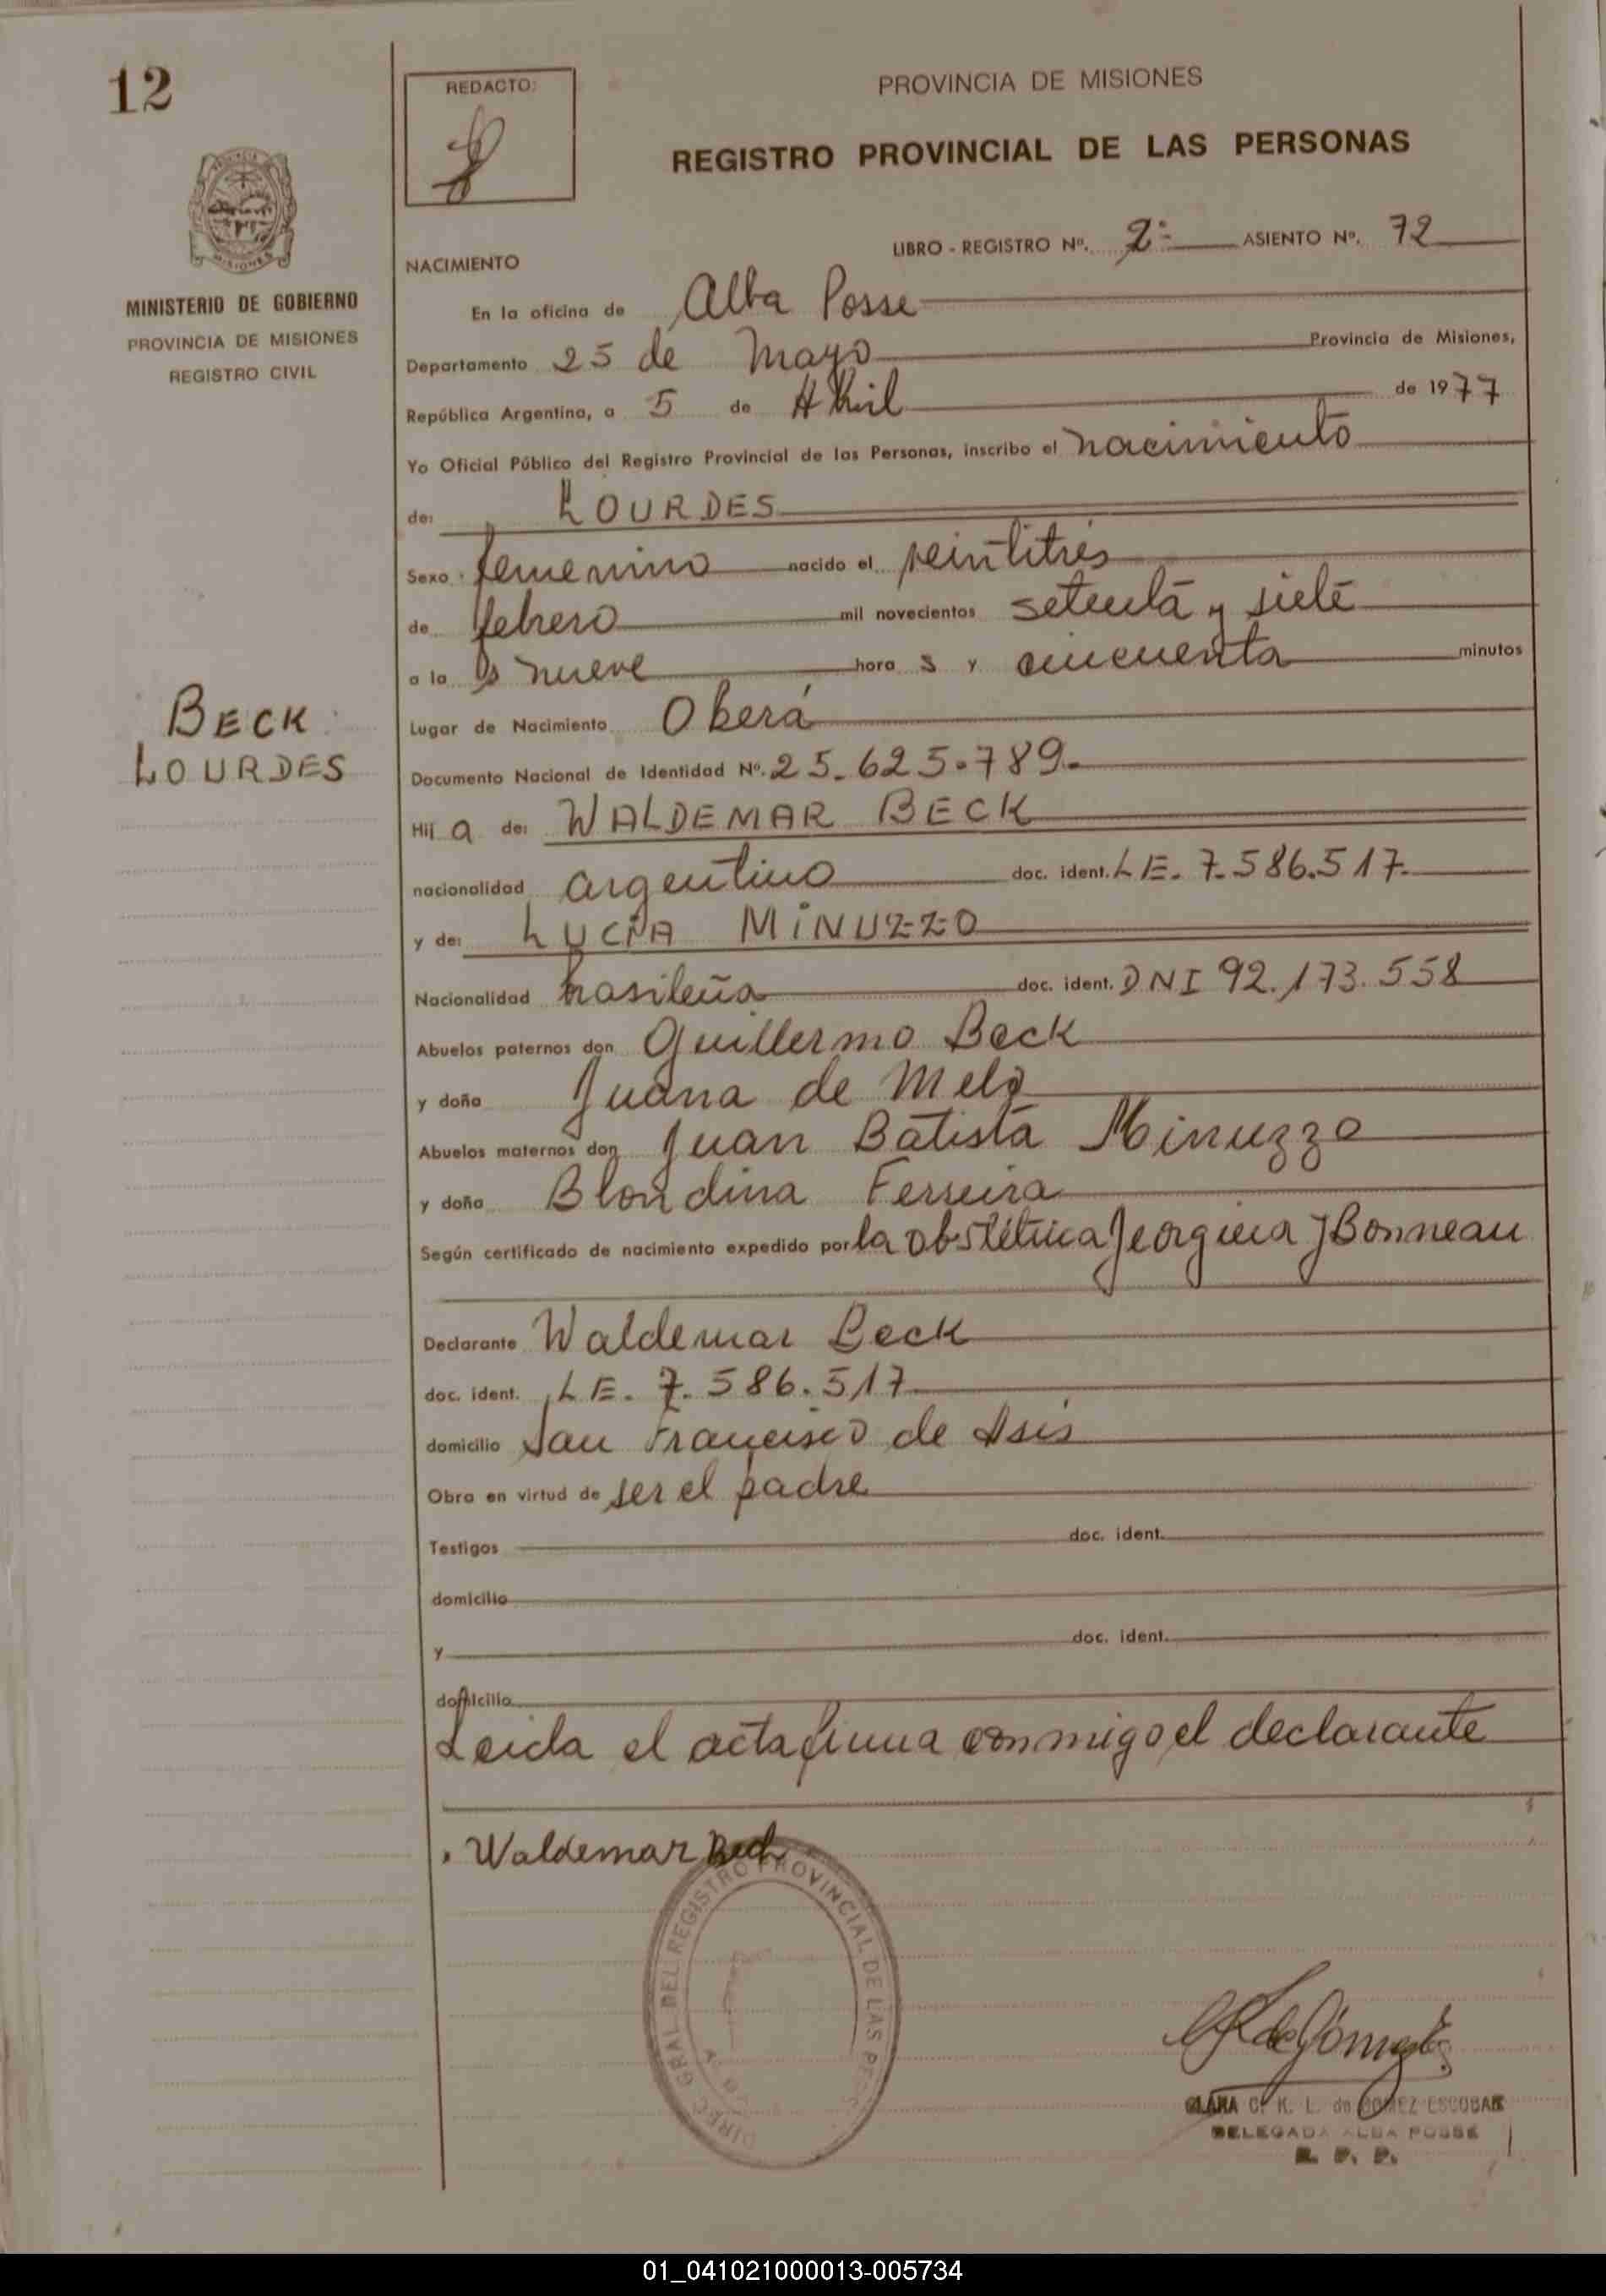 12
REDACTO:
PROVINCIA DE MISIONES
REGISTRO PROVINCIAL DE LAS PERSONAS
LIBRO - REGISTRO Nº. 2º ASIENTO Nº. 72
MISIONES
MINISTERIO DE GOBIERNO
PROVINCIA DE MISIONES
REGISTRO CIVIL
NACIMIENTO
En la oficina de Alba Posse
Departamento 25 de Mayo Provincia de Misiones,
República Argentina, a 5 de Abril de 1977
Yo Oficial Público del Registro Provincial de las Personas, inscribo el nacimiento
de: LOURDES
Sexo femenino nacido el veintitres
de febrero mil novecientos setenta y siete
a la s nueve hora s y cincuenta minutos
Lugar de Nacimiento Oberá
BECK
LOURDES
Documento Nacional de Identidad Nº. 25.625.789.
Hij a de: WALDEMAR BECK
nacionalidad argentino doc. ident. LE. 7.586.517.
y de: LUCIA MINUZZO
Nacionalidad brasileña doc. ident. DNI 92.173.558
Abuelos paternos don Guillermo Beck
y doña Juana de Melo
Abuelos maternos don Juan Batista Minuzzo
y doña Blondina Ferreira
Según certificado de nacimiento expedido por la obstétrica Jeorgina J Bonneau
Declarante Waldemar Beck
doc. ident. LE. 7.586.517
domicilio San Francisco de Asis
Obra en virtud de ser el padre
Testigos doc. ident.
domicilio
y doc. ident.
domicilio
Leida el acta firma conmigo el declarante
Waldemar Beck
DIREC. GRAL DEL REGISTRO PROVINCIAL DE LAS
CLARA C. K. L. de GOMEZ ESCOBAR
DELEGADA ALBA POSSE
R. P. P.
01_041021000013-005734